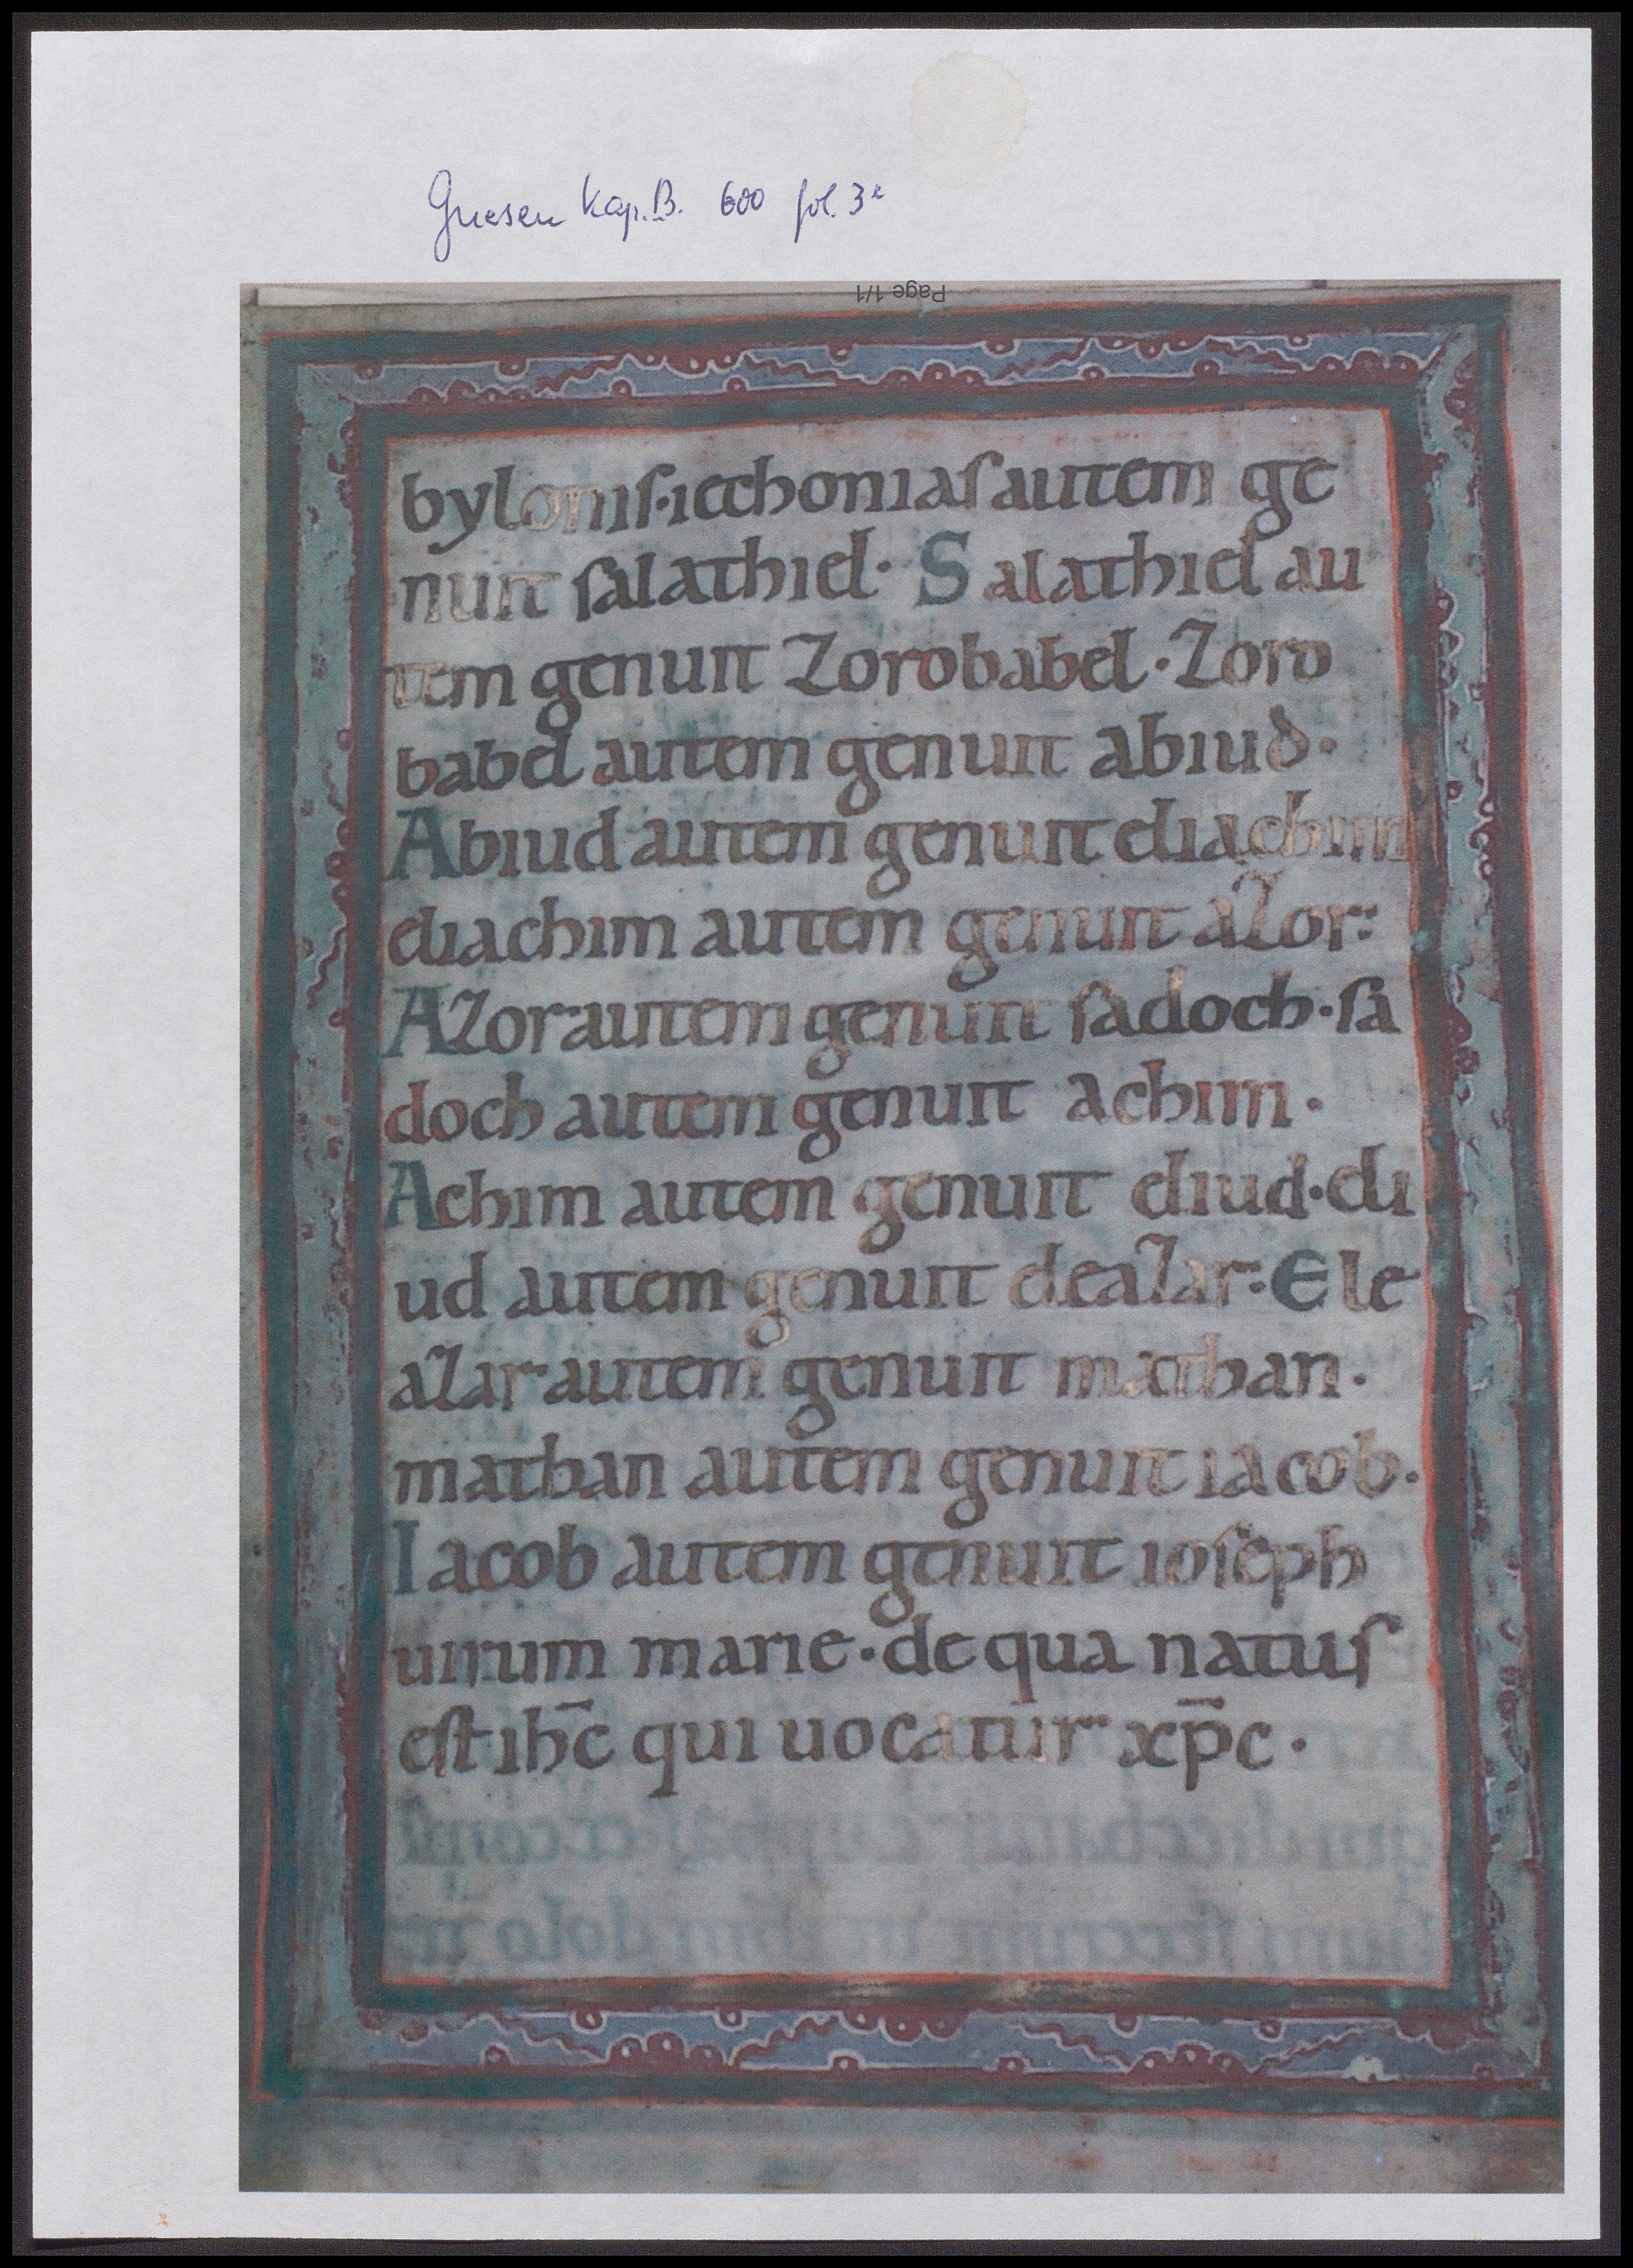 Gnesen Kap.B. 600 fol. 3r
Page 1/1
bylonis·iechonias autem ge
nuit salathiel· Salathiel au
tem genuit Zorobabel·Zoro
babel autem genuit abiud·
Abiud autem genuit eliachim
eliachim autem genuit aZor:
AZor autem genuit sadoch·sa
doch autem genuit achim·
Achim autem genuit eliud·eli
ud autem genuit eleaZar:Ele
aZar autem genuit mathan·
mathan autem genuit iacob·
Iacob autem genuit ioseph
uirum marie·de qua natus
est ih̄c qui uocatur xp̄c·